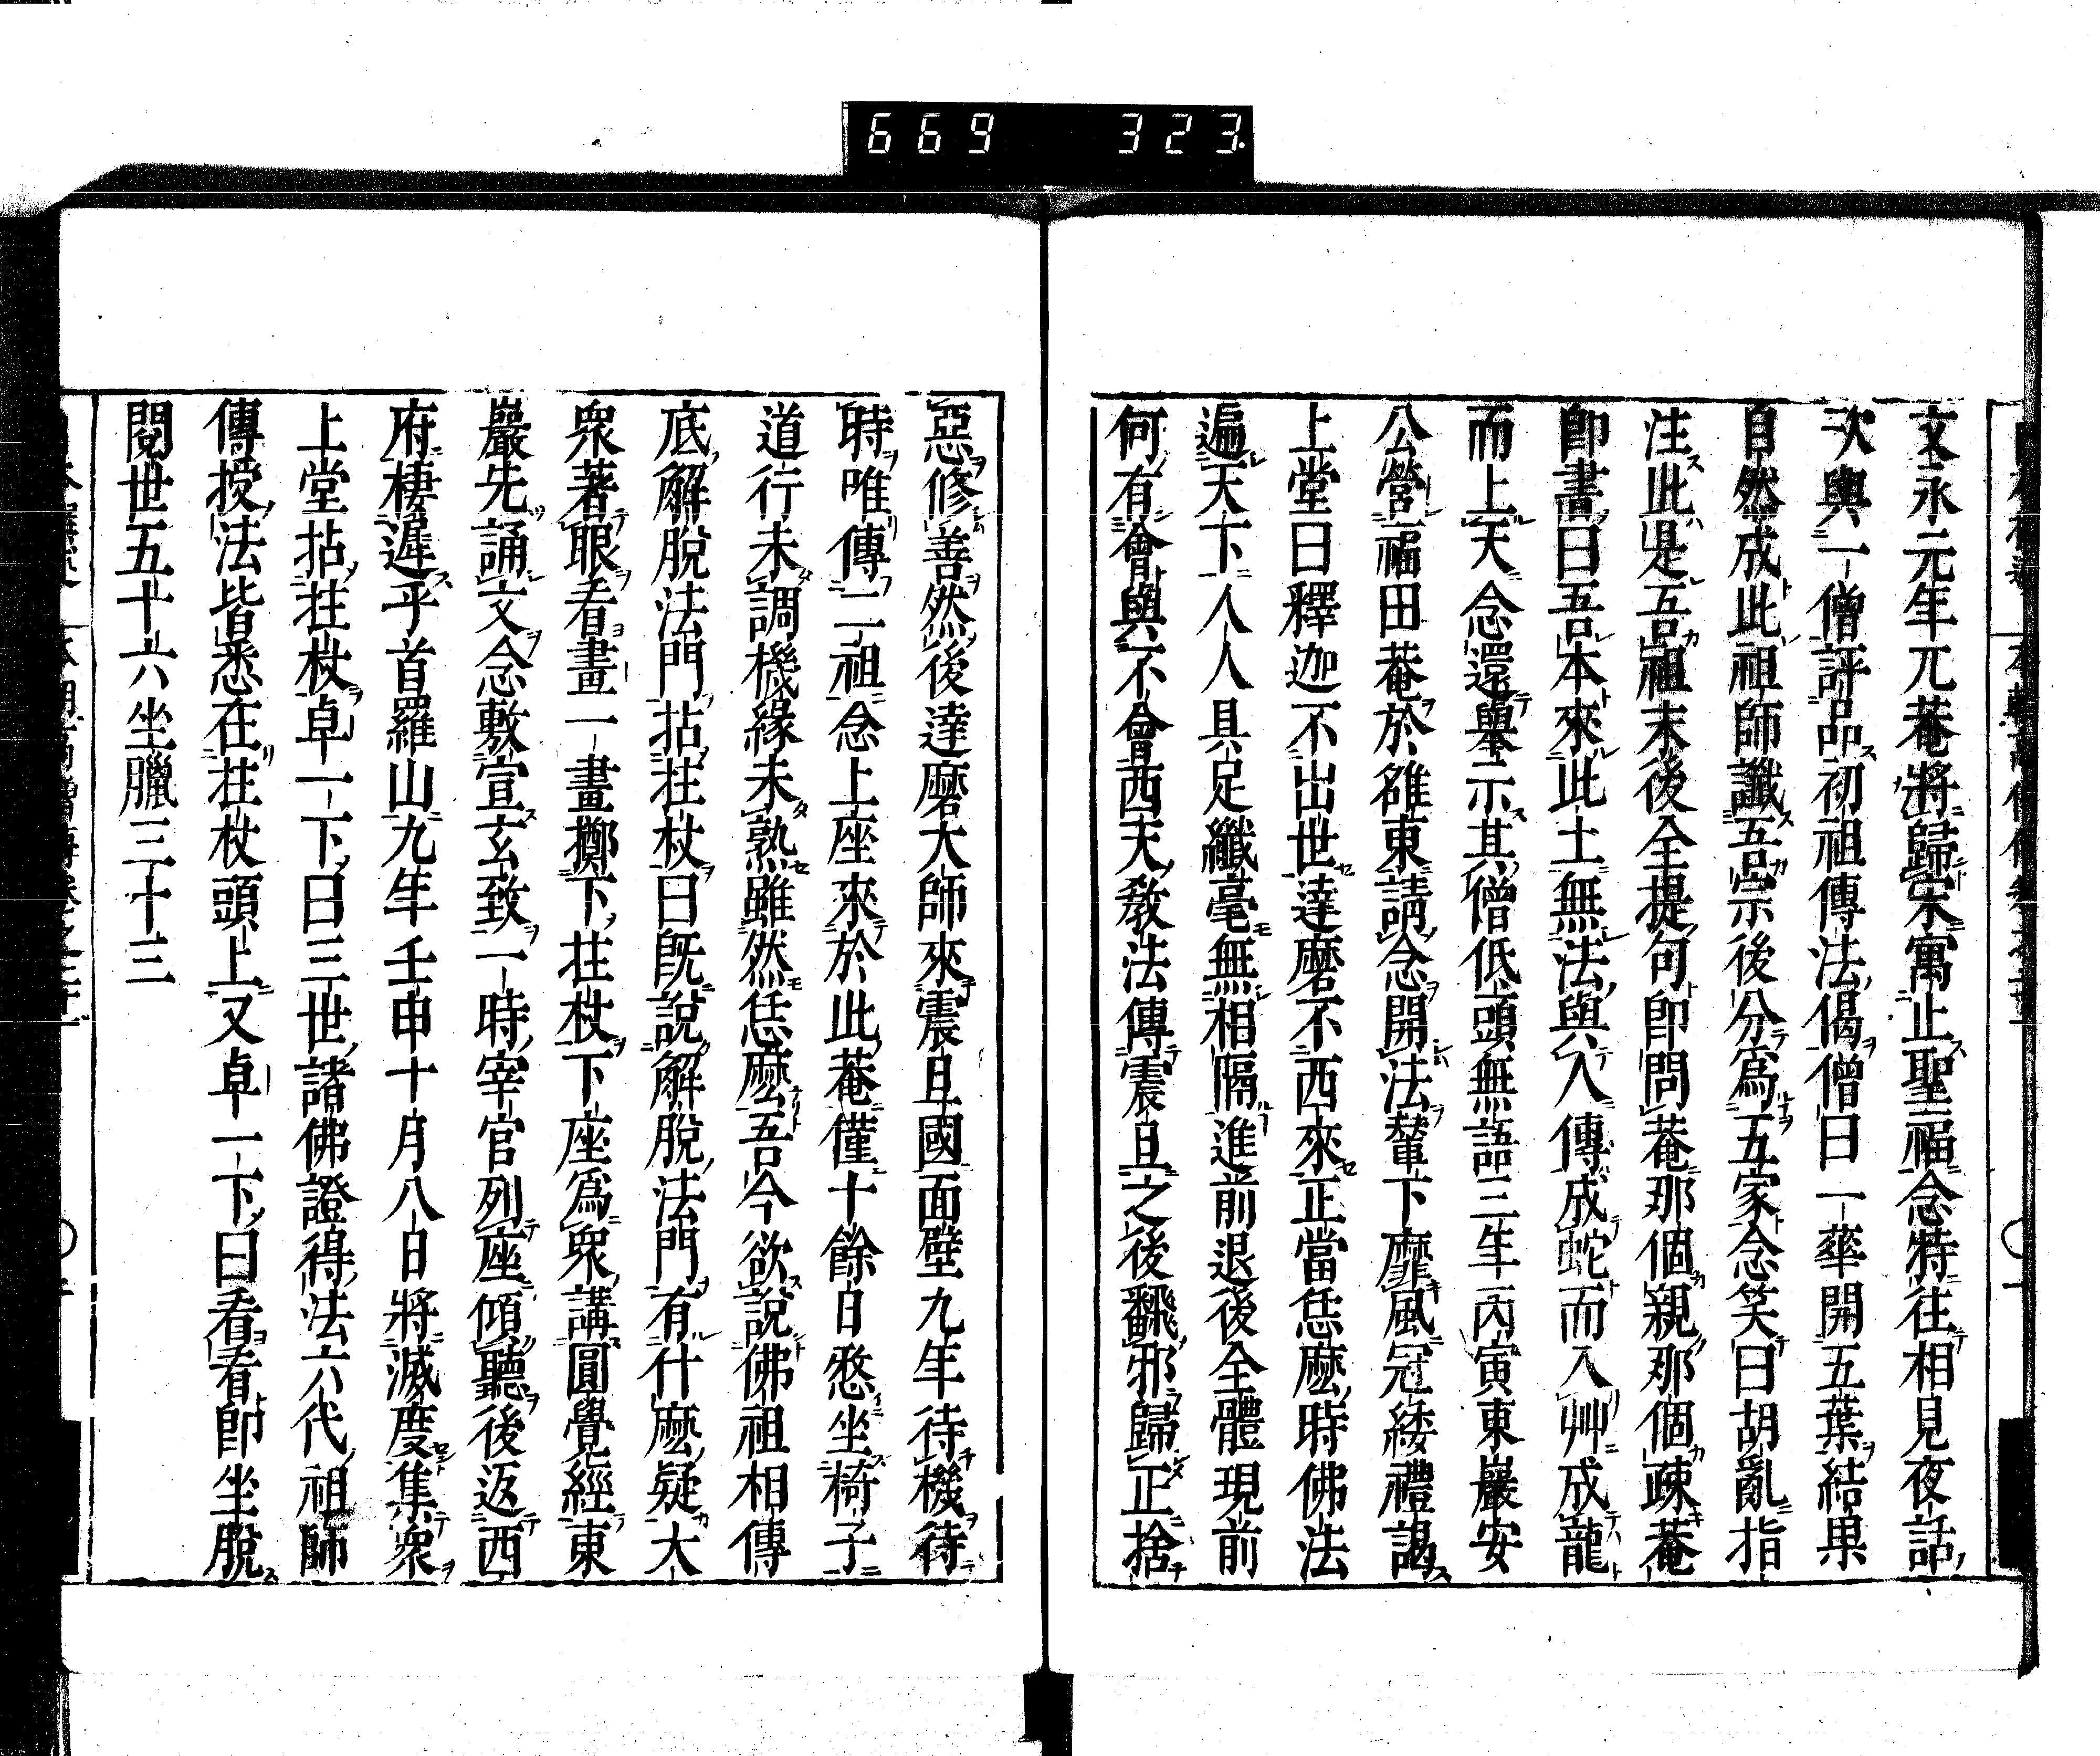 669 323
文永元年兀菴將歸宋寓止聖福念特往相見夜話
次與一僧評品初祖傳法偈僧曰一華開五葉結果
自然成此祖師讖吾宗後分爲五家念笑曰胡亂指
注此是吾祖末後全提句卽問菴那個親那個疎菴
卽書曰吾本來此土無法與人傳成蛇而入艸成龍
而上天念還舉示其僧低頭無語三年丙寅東巖安
公營福田菴於雒東請念開法輦下靡風冠緌禮謁
上堂曰釋迦不出世達磨不西來正當恁麽時佛法
遍天下人人具足纖毫無相隔進前退後全體現前
何有會與不會西天敎法傳震旦之後翻邪歸正捨
惡修善然後達磨大師來震旦國面壁九年待機待
時唯傳二祖念上座來於此菴僅十餘日憗坐椅子
道行未調機緣未熟雖然恁麽吾今欲說佛祖相傳
底解脫法門拈拄杖曰旣說解脫法門有什麽疑大
衆著眼看畫一畫擲下拄杖下座爲衆講圓覺經東
巖先誦文念敷宣玄致一時宰官列座傾聽後返西
府棲遲乎首羅山九年壬申十月八日將滅度集衆
上堂拈拄杖卓一下曰三世諸佛證得法六代祖師
傳授法皆悉在拄杖頭上又卓一下曰看看卽坐脫
閱世五十六坐臘三十三